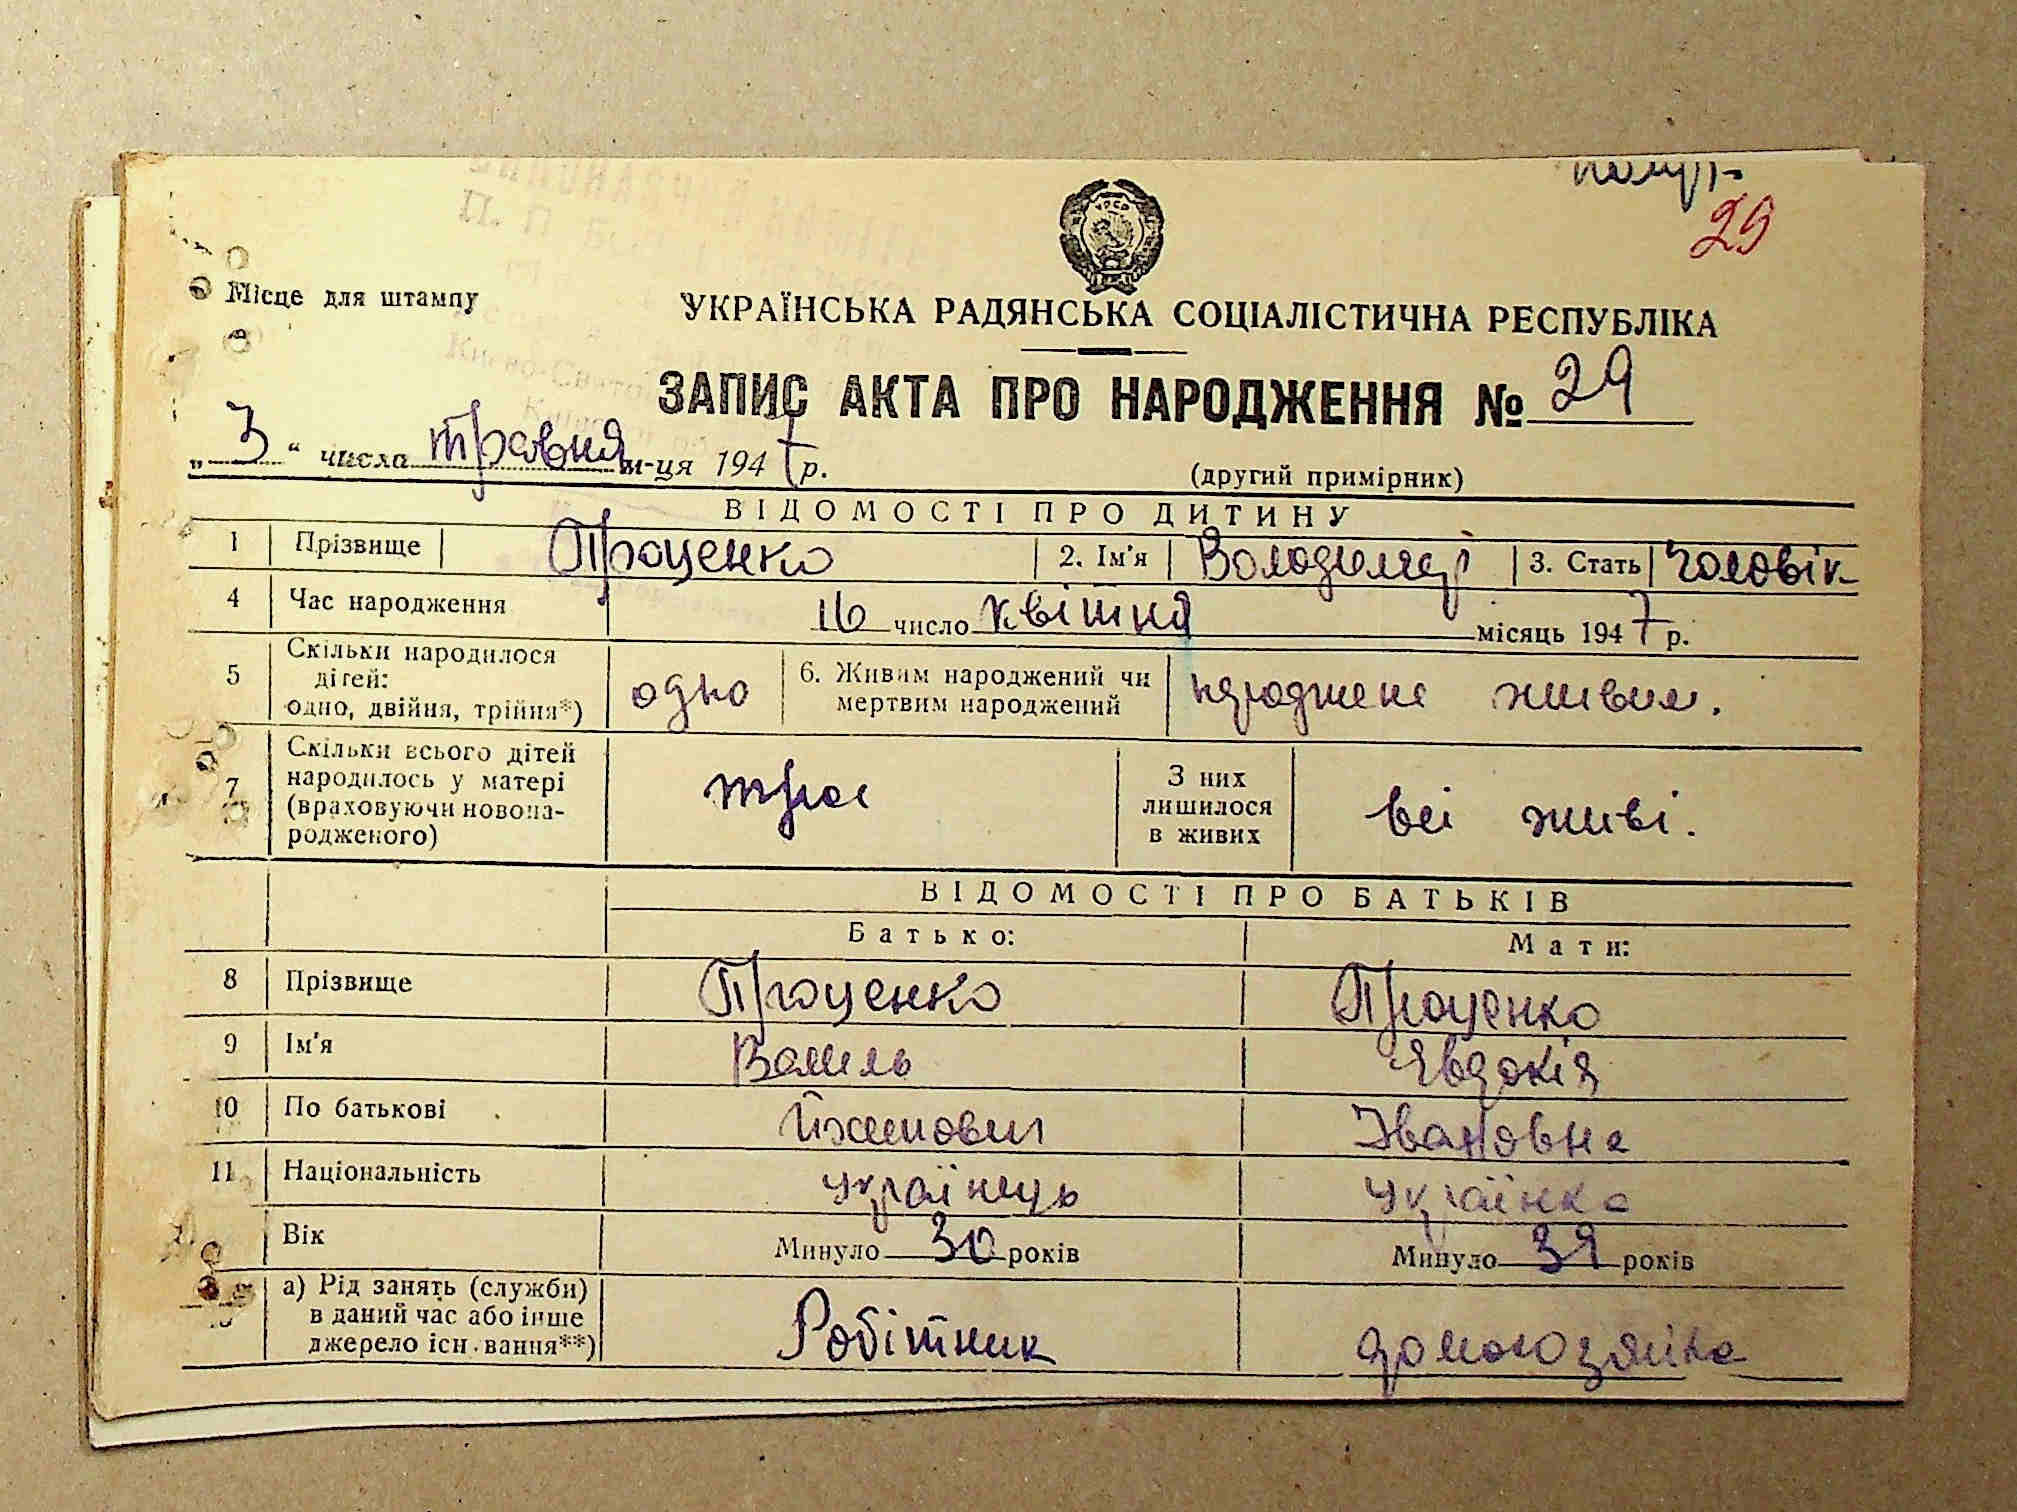 29
Місце для штампу
УКРАЇНСЬКА РАДЯНСЬКА СОЦІАЛІСТИЧНА РЕСПУБЛІКА
ЗАПИС АКТА ПРО НАРОДЖЕННЯ № 29
„3“ числа травня м-ця 1947 р.
(другий примірник)
ВІДОМОСТІ ПРО ДИТИНУ
1 Прізвище Проценко 2. Ім'я Володимир 3. Стать чоловік
4 Час народження 16 число квітня місяць 1947 р.
5 Скільки народилося дітей: одно, двійня, трійня*) одно 6. Живим народжений чи мертвим народжений народжене живим.
7 Скільки всього дітей народилось у матері (враховуючи новонародженого) троє З них лишилося в живих всі живі.
ВІДОМОСТІ ПРО БАТЬКІВ
Батько: Мати:
8 Прізвище Проценко Проценко
9 Ім'я Василь Явдокія
10 По батькові Івановна
11 Національність українець українка
Вік Минуло 30 років Минуло 39 років
а) Рід занять (служби) в даний час або інше джерело існ вання**) Робітник домохозяйка